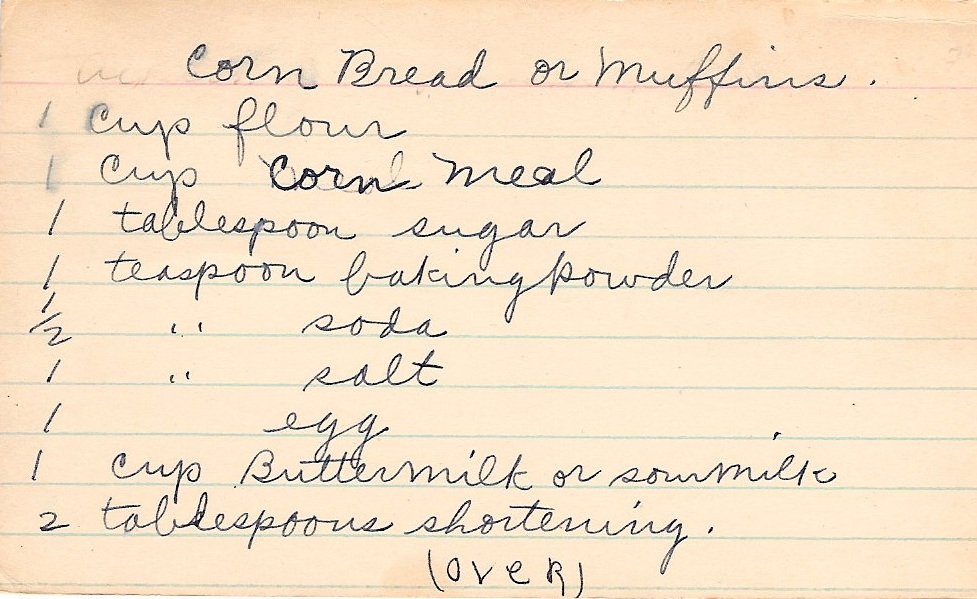 Corn Bread or Muffins.
1 cup flour
1 cup Corn Meal
1 tablespoon sugar
1 teaspoon baking powder
1/2 " soda
1 " salt
1 egg
1 cup Buttermilk or sour milk
2 tablespoons shortening.
(OVER)